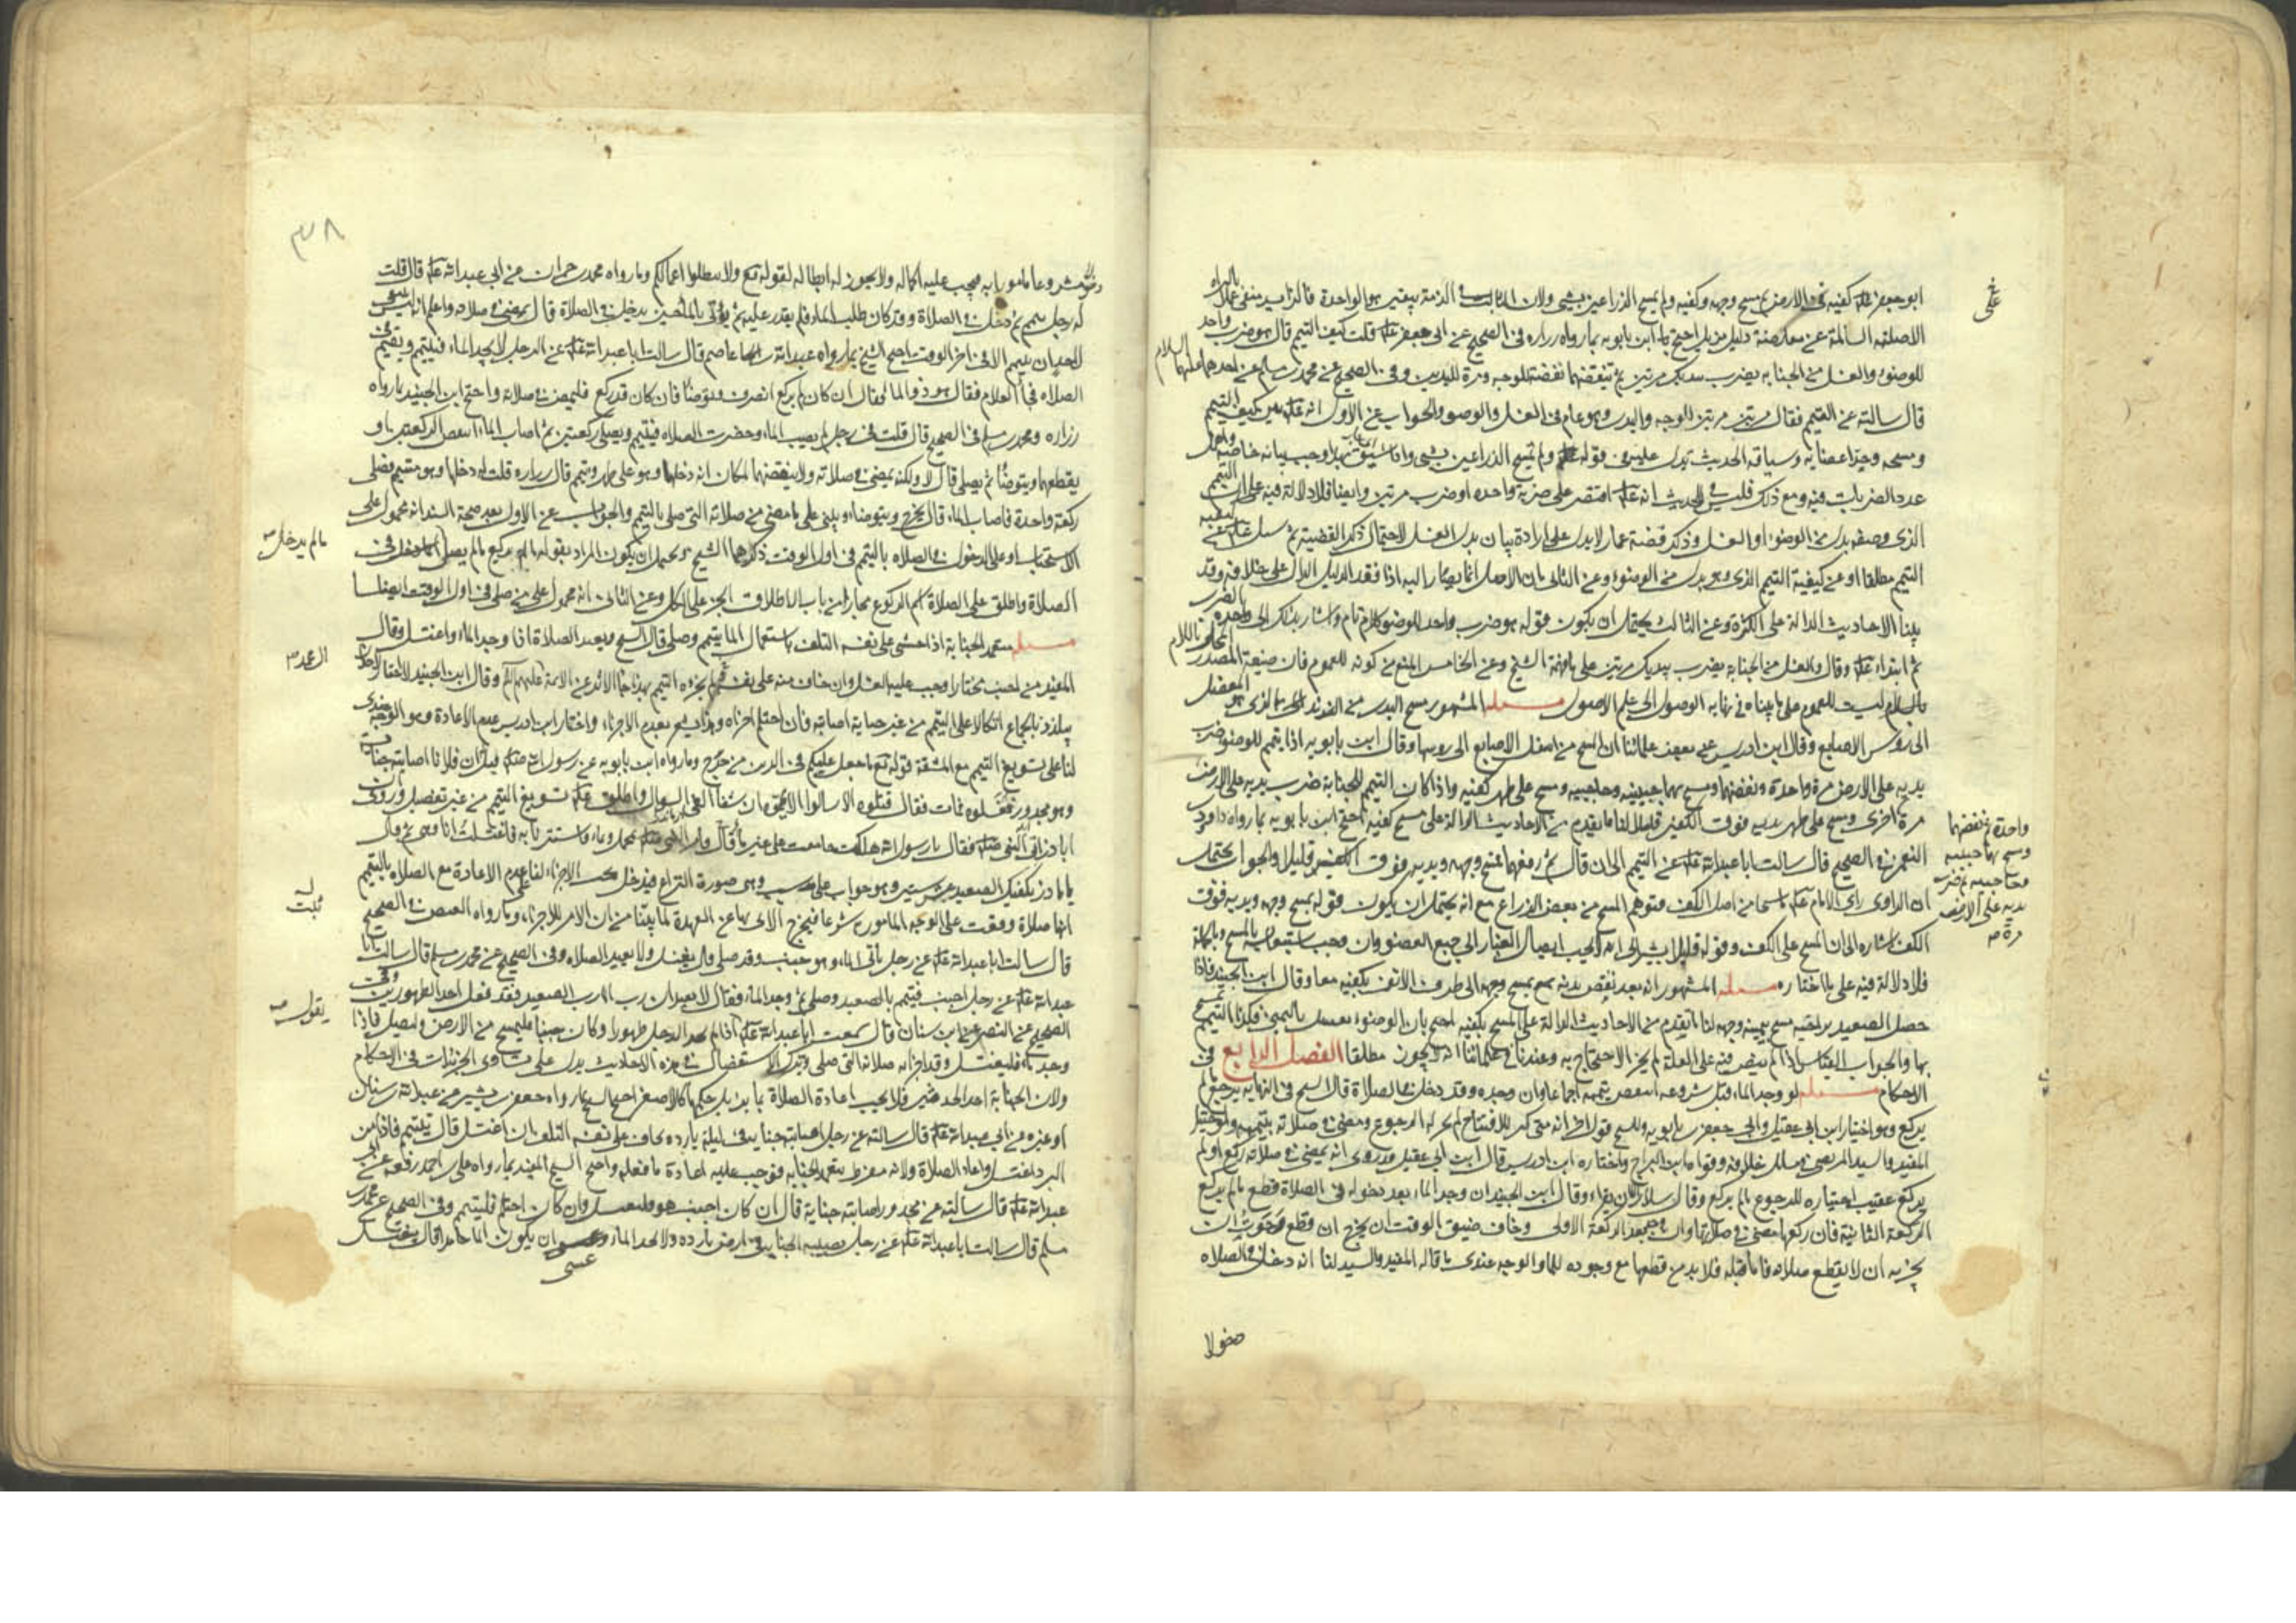 ابو جعفر عله كفيه في الارض ثم مسح وجهه وكفيه ولم يمسح الذراعين بشيء ولان الثابت في الذمة بيقين هو الواحدة فالزايد منفي
الاصلية السالمة عن معارضة دليل مزيل احتج ابن بابويه بما رواه زراره في الصحيح عن ابي جعفر عله قلت كيف التيمم قال هو ضرب واحد
للوضوء والغسل من الجنابه يضرب بيديك مرتين ثم تنفضهما نفضة للوجه ومرة لليدين وفي الصحيح عن محمد بن مسلم عن احدهما عليهما السلام
قال سالته عن التيمم فقال مرتين مرتين للوجه واليدين وهو عام في الغسل والوضوء والجواب عن الاول انه عله بين كيفية التيمم
ومسحه وحد اعضائه وسياقه الحديث يدل عليه في قوله ولم يمسح الذراعين بشيء
عدد الضربات فيه ومع ذلك فليس في الحديث انه عله اقتصر على ضربة واحده او ضرب مرتين وايضا فلا دلالة فيه على ان التيمم
الذي وصفه بدل من الوضوء او الغسل وذكر قضية عمار لا يدل على ارادة بيان بدل الغسل لاحتمال ذكر القضية ثم سئل عله عن كيفيه
التيمم مطلقا او عن كيفية التيمم الذي هو بدل من الوضوء وعن الثاني بان الاصل انما يصار اليه اذا فقد الدليل الدال على خلافه وقد
بينا الاحاديث الدالة على الكثرة وعن الثالث يحتمل ان يكون قوله هو ضرب واحد للوضوء كلام تام واشار بذلك الى وحده الضرب
ثم ابتداء عله وقال والغسل من الجنابه يضرب بيديك مرتين على ما فهمه الشيخ وعن الخامس المنع من كونه للعموم فان صيغة المصدر
باللام ليست للعموم على ما بيناه في نهايه الوصول الى علم الاصول مسئله المشهور مسح اليدين من الزند
الى رؤس الاصابع وقال ابن ادريس عن بعض علمائنا ان المسح من اصل الاصابع الى روسها وقال ابن بابويه اذا تيمم للوضوء ضرب
يديه على الارض مرة واحدة ونفضهما ومسح بهما جبينيه وحاجبيه ومسح على ظهر كفيه واذا كان التيمم للجنابة ضرب بيديه على الارض
مرة اخرى ومسح على ظهر يديه فوق الكفين قليلا لنا ما تقدم من الاحاديث الدالة على مسح كفيه احتج ابن بابويه بما رواه داود بن
النعمن في الصحيح قال سالت ابا عبد الله عله عن التيمم الى ان قال ثم رفعهما فمسح وجهه ويديه فوق الكفين قليلا والجواب يحتمل
ان الراوي راى الامام عله ماسحا من اصل الكف فتوهم المسح من بعض الذراع مع انه يحتمل ان يكون قوله يمسح وجهه ويديه فوق
الكف اشاره الى ان المسح على الكف وقوله قليلا يشير الى انه لا يجب ايصال الغبار الى جميع العضو وان وجب استيعابه بالمسح وبالجملة
فلا دلالة فيه على ما اختاره مسئله المشهور انه بعد نفض يديه يمسح بهما وجهه الى طرف الانف بكفيه معا وقال ابن الجنيد فاذا
حصل الصعيد براحتيه مسح بيمينه وجهه لنا ما تقدم من الاحاديث الدالة على المسح بكفيه احتج بان الوضوء يغسل باليمين فكذا التيمم
بها والجواب القياس اذا لم ينص فيه على العلة لم يجز الاحتجاج به وعندنا في علمائنا انه لا يجوز مطلقا الفصل الرابع في
الاحكام مسئله لو وجد الماء قبل شروعه انتقض تيممه اجماعا وان وجده وقد دخل في الصلاة قال الشيخ في النهايه يرجع ما لم
يركع وهو اختيار ابن ابي عقيل وابي جعفر بن بابويه وللشيخ قول اخر انه متى كبر للافتتاح لم يجز له الرجوع ومضى في صلاته بتيممه
المفيد والسيد المرتضى في مسائل خلافه وقواه ابن البراج واختاره ابن ادريس قال ابن ابي عقيل وقد روى انه يمضي في صلاته ركع او لم
يركع عقيب اختياره للرجوع ما لم يركع وقال سلار وقال ابن الجنيد ان وجد الماء بعد دخوله في الصلاة قطع ما لم يركع
الركعة الثانية فان ركعها مضى في صلاته وان وجد بعد الركعة الاولى وخاف ضيق الوقت ان يخرج ان قطع رجوت ان
يجزيه ان لا يقطع صلاته فاما قبله فلا بد من قطعها مع وجوده للماء والوجه عندي ما قاله المفيد والسيد لنا انه دخل في الصلاه
دخولا
واحدة ثم نفضهما
ومسح بهما جبينيه
وحاجبيه ثم ضرب
يديه على الارض
مرة
٣٨
دخولا مشروعا مامورا به فيجب عليه اكماله ولا يجوز له ابطاله لقوله تع ولا تبطلوا اعمالكم وما رواه محمد بن حمران عن ابي عبد الله عله قال قلت
له رجل تيمم ثم دخل في الصلاة وقد كان طلب الماء فلم يقدر عليه ثم يؤتى بالماء حين يدخل في الصلاة قال يمضي في صلاته واعلم انه ليس ينبغي
لاحد ان يتيمم الا في اخر الوقت احتج الشيخ بما رواه عبد الله بن عاصم قال سالت ابا عبد الله عله عن الرجل لا يجد الماء فيتيمم ويقيم في
الصلاه فجاء الغلام فقال هوذا الماء فقال ان كان لم يركع انصرف وتوضا فان كان قد ركع فليمض في صلاته واحتج ابن الجنيد بما رواه
زراره ومحمد بن مسلم في الصحيح قال قلت في رجل لم يصب الماء وحضرت الصلاه فتيمم وصلى ركعتين ثم اصاب الماء اينقض الركعتين او
يقطعهما ويتوضا ثم يصلي قال لا ولكنه يمضي في صلاته ولا ينقضهما لمكان انه دخلها وهو على طهر وتيمم قال زراره قلت له دخلها وهو متيمم فصلى
ركعة واحدة فاصاب الماء قال يخرج ويتوضا ويبني على ما مضى من صلاته التي صلى بالتيمم والجواب عن الاول بعد صحة السند انه محمول على
الاستحباب او على الدخول في الصلاه بالتيمم في اول الوقت ذكرهما الشيخ ويحتمل ان يكون المراد بقوله ما لم يركع ما لم يصل
ما لم يدخل
الصلاة واطلق على الصلاة اسم الركوع مجازا من باب اطلاق الجزء على الكل وعن الثاني انه محمول على من صلى في اول الوقت ايضا
مسئله متعمد الجنابة اذا خشي على نفسه التلف باستعمال الماء يتيمم وصلى قال الشيخ ويعيد الصلاة اذا وجد الماء واغتسل وقال
المفيد من اجنب مختارا وجب عليه الغسل وان خاف منه على نفسه ولم يجزه التيمم بهذا جاء الاثر عن الائمة عليهم السلم وقال ابن الجنيد لا اختار لاحد ان
يتلذذ بالجماع اتكالا على التيمم من غير جنابة اصابته فان احتلم اجزاه وهذا يشعر بعدم الاجزاء واختار ابن ادريس عدم الاعادة وهو الوجه عندي
لنا على تسويغ التيمم مع المشقة قوله تع ما جعل عليكم في الدين من حرج وما رواه ابن بابويه عن رسول الله صله قيل ان فلانا اصابته جنابة
وهو مجدور فغسلوه فمات فقال قتلوه الا سالوا الا يمموه ان شفاء العي السؤال واطلق عله تسويغ التيمم من غير تفصيل وروى ان
ابا ذر اتى النبي صله فقال يا رسول الله هلكت جامعت على غير ماء قال فامر النبي صله بمحمل وماء فاستترنا به فاغتسلت انا وهي ثم قال
يا ابا ذر يكفيك الصعيد عشر سنين وهو جواب على سبب وهي صورة النزاع فيدخل تحت الاجزاء لنا على عدم الاعادة مع الصلاه بالتيمم
انها صلاة وقعت على الوجه المامور به شرعا فيخرج الاتي بها عن العهدة لما بينا من ان الامر للاجزاء وما رواه العيص في الصحيح
قال سالت ابا عبد الله عله عن رجل ياتي الماء وهو جنب وقد صلى قال يغتسل ولا يعيد الصلاه وفي الصحيح عن محمد بن مسلم قال سالت ابا
عبد الله عله عن رجل اجنب فتيمم بالصعيد وصلى ثم وجد الماء فقال لا يعيد ان رب الماء رب الصعيد فقد فعل احد الطهورين وفي
الصحيح عن النضر عن ابن سنان قال سمعت ابا عبد الله عله يقول اذا لم يجد الرجل طهورا وكان جنبا فليمسح من الارض وليصل فاذا
وجد ماء فليغتسل وقد اجزاته صلاته التي صلى وترك الاستفصال في هذه الاحاديث يدل على تساوي الجزئيات في الاحكام
ولان الجنابة احد الحدثين فلا يجب اعادة الصلاة بما يزيل حكمها كالاصغر احتج الشيخ بما رواه جعفر بن بشير عن عبد الله بن سنان
او غيره عن ابي عبد الله عله قال سالته عن رجل اصابته جنابة في ليلة بارده يخاف على نفسه التلف ان اغتسل قال يتيمم فاذا امن
البرد اغتسل واعاد الصلاة ولانه مفرط بتعمد الجنابه فوجب عليه اعادة ما فعله واحتج الشيخ المفيد بما رواه علي بن احمد رفعه عن ابي
عبد الله عله قال سالته عن مجدور اصابته جنابة قال ان كان اجنب هو فليغتسل وان كان احتلم فليتيمم وفي الصحيح عن محمد بن
مسلم قال سالت ابا عبد الله عله عن رجل تصيبه الجنابة في ارض بارده ولا يجد الماء وعسى ان يكون الماء جامدا قال يغتسل
عسى